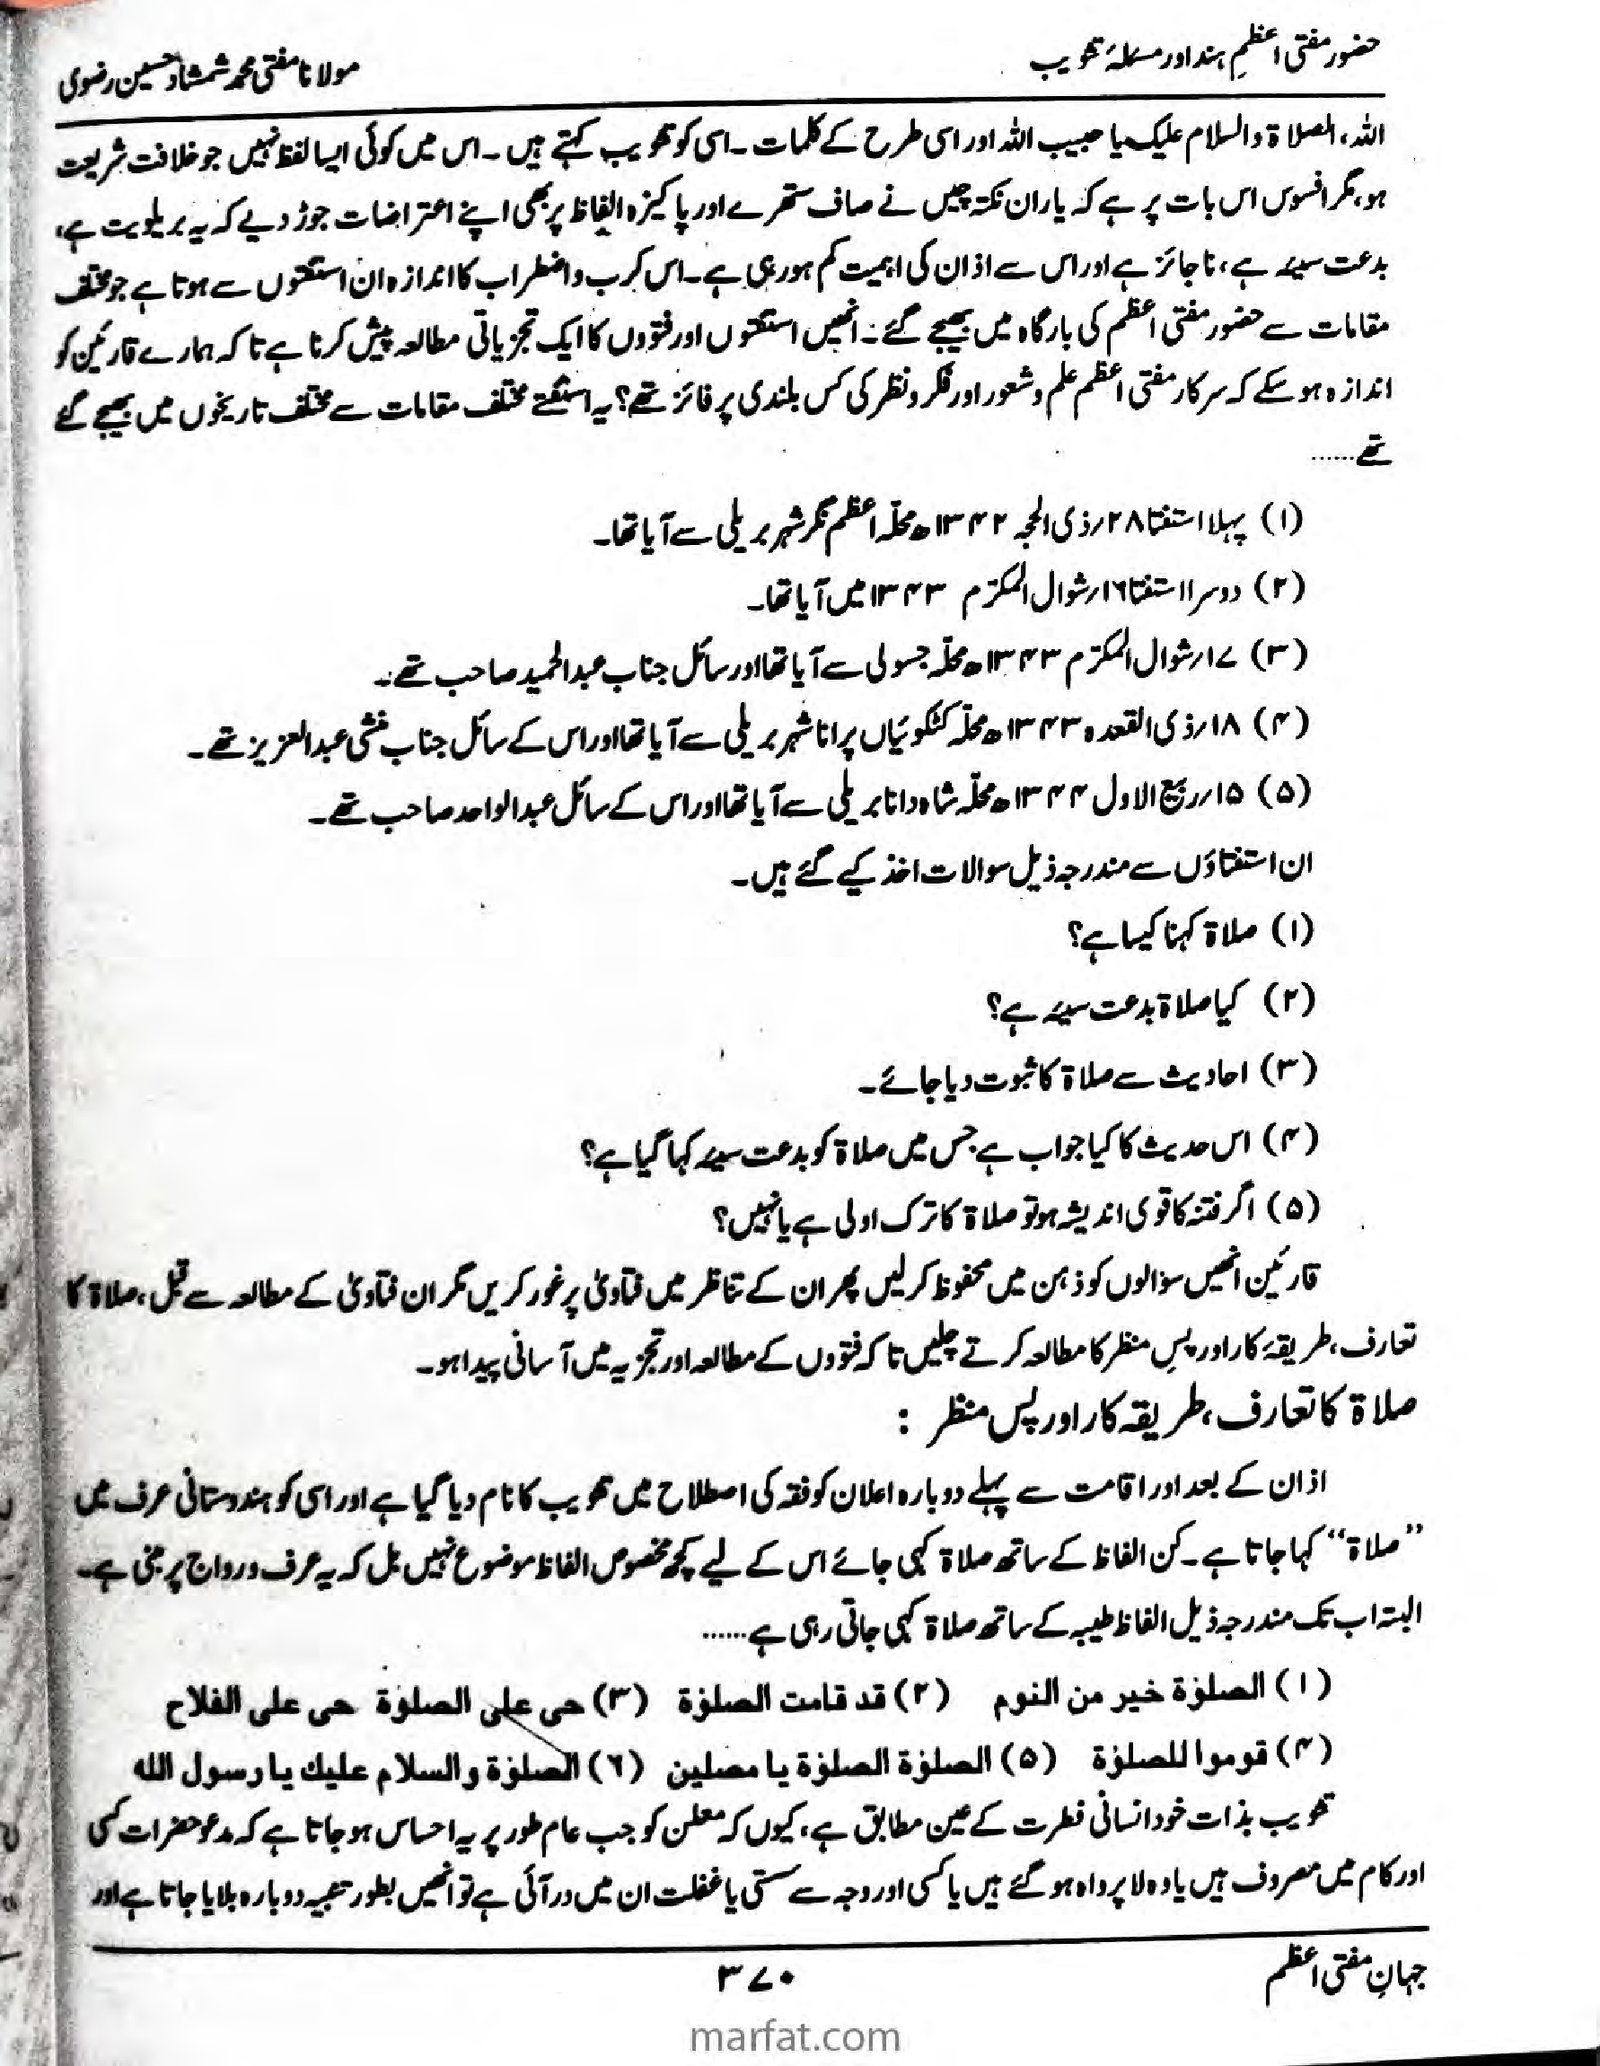 حضور مفتی اعظمِ ہند اور مسئلۂ تثویب
مولانا مفتی محمد شمشاد حسین رضوی
اللہ، الصلاۃ والسلام علیک یا حبیب اللہ اور اسی طرح کے کلمات۔ اسی کو تثویب کہتے ہیں۔ اس میں کوئی ایسا لفظ نہیں جو خلافت شریعت
ہو، مگر افسوس اس بات پر ہے کہ یاران نکتہ چیں نے صاف ستھرے اور پاکیزہ الفاظ پر بھی اپنے اعتراضات جوڑ دیے کہ یہ بریلویت ہے،
بدعت سیئہ ہے، ناجائز ہے اور اس سے اذان کی اہمیت کم ہو رہی ہے۔ اس کرب و اضطراب کا اندازہ ان استفتوں سے ہوتا ہے جو مختلف
مقامات سے حضور مفتی اعظم کی بارگاہ میں بھیجے گئے۔ انھیں استفتوں اور فتووں کا ایک تجزیاتی مطالعہ پیش کرنا ہے تا کہ ہمارے قارئین کو
اندازہ ہو سکے کہ سرکار مفتی اعظم علم و شعور اور فکر و نظر کی کس بلندی پر فائز تھے؟ یہ استفتے مختلف مقامات سے مختلف تاریخوں میں بھیجے گئے
تھے......
(۱) پہلا استفتا ۲۸؍ ذی الحجہ ۱۳۴۲ھ محلّہ اعظم نگر شہر بریلی سے آیا تھا۔
(۲) دوسرا استفتا ۱۶؍ شوال المکرّم ۱۳۴۳ میں آیا تھا۔
(۳) ۱۷؍ شوال المکرّم ۱۳۴۳ھ محلّہ جسولی سے آیا تھا اور سائل جناب عبدالحمید صاحب تھے۔
(۴) ۱۸؍ ذی القعدہ ۱۳۴۳ھ محلّہ کنگوئیاں پرانا شہر بریلی سے آیا تھا اور اس کے سائل جناب منشی عبدالعزیز تھے۔
(۵) ۱۵؍ ربیع الاول ۱۳۴۴ھ محلّہ شاہ دانا بریلی سے آیا تھا اور اس کے سائل عبدالواحد صاحب تھے۔
ان استفتاؤں سے مندرجہ ذیل سوالات اخذ کیے گئے ہیں۔
(۱) صلاۃ کہنا کیسا ہے؟
(۲) کیا صلاۃ بدعت سیئہ ہے؟
(۳) احادیث سے صلاۃ کا ثبوت دیا جائے۔
(۴) اس حدیث کا کیا جواب ہے جس میں صلاۃ کو بدعت سیئہ کہا گیا ہے؟
(۵) اگر فتنہ کا قوی اندیشہ ہو تو صلاۃ کا ترک اولی ہے یا نہیں؟
قارئین انھیں سؤالوں کو ذہن میں محفوظ کر لیں پھر ان کے تناظر میں فتاویٰ پر غور کریں مگر ان فتاویٰ کے مطالعہ سے قبل، صلاۃ کا
تعارف، طریقۂ کار اور پسِ منظر کا مطالعہ کرتے چلیں تا کہ فتووں کے مطالعہ اور تجزیہ میں آسانی پیدا ہو۔
صلاۃ کا تعارف، طریقہ کار اور پس منظر :
اذان کے بعد اور اقامت سے پہلے دوبارہ اعلان کو فقہ کی اصطلاح میں تثویب کا نام دیا گیا ہے اور اسی کو ہندوستانی عرف میں
”صلاۃ“ کہا جاتا ہے۔ کن الفاظ کے ساتھ صلاۃ کہی جائے اس کے لیے کچھ مخصوص الفاظ موضوع نہیں بل کہ یہ عرف و رواج پر مبنی ہے۔
البتہ اب تک مندرجہ ذیل الفاظ طیبہ کے ساتھ صلاۃ کہی جاتی رہی ہے......
(۱) الصلوٰۃ خیر من النوم (۲) قد قامت الصلوٰۃ (۳) حی علی الصلوٰۃ حی علی الفلاح
(۴) قوموا للصلوٰۃ (۵) الصلوٰۃ الصلوٰۃ یا مصلین (۶) الصلوٰۃ والسلام علیك یا رسول اللہ
تثویب بذات خود انسانی فطرت کے عین مطابق ہے، کیوں کہ معلن کو جب عام طور پر یہ احساس ہو جاتا ہے کہ مدعو حضرات کسی
اور کام میں مصروف ہیں یا وہ لا پرواہ ہو گئے ہیں یا کسی اور وجہ سے سستی یا غفلت ان میں در آئی ہے تو انھیں بطور تنبیہ دوبارہ بلایا جاتا ہے اور
جہانِ مفتی اعظم
۳۷۰
marfat.com